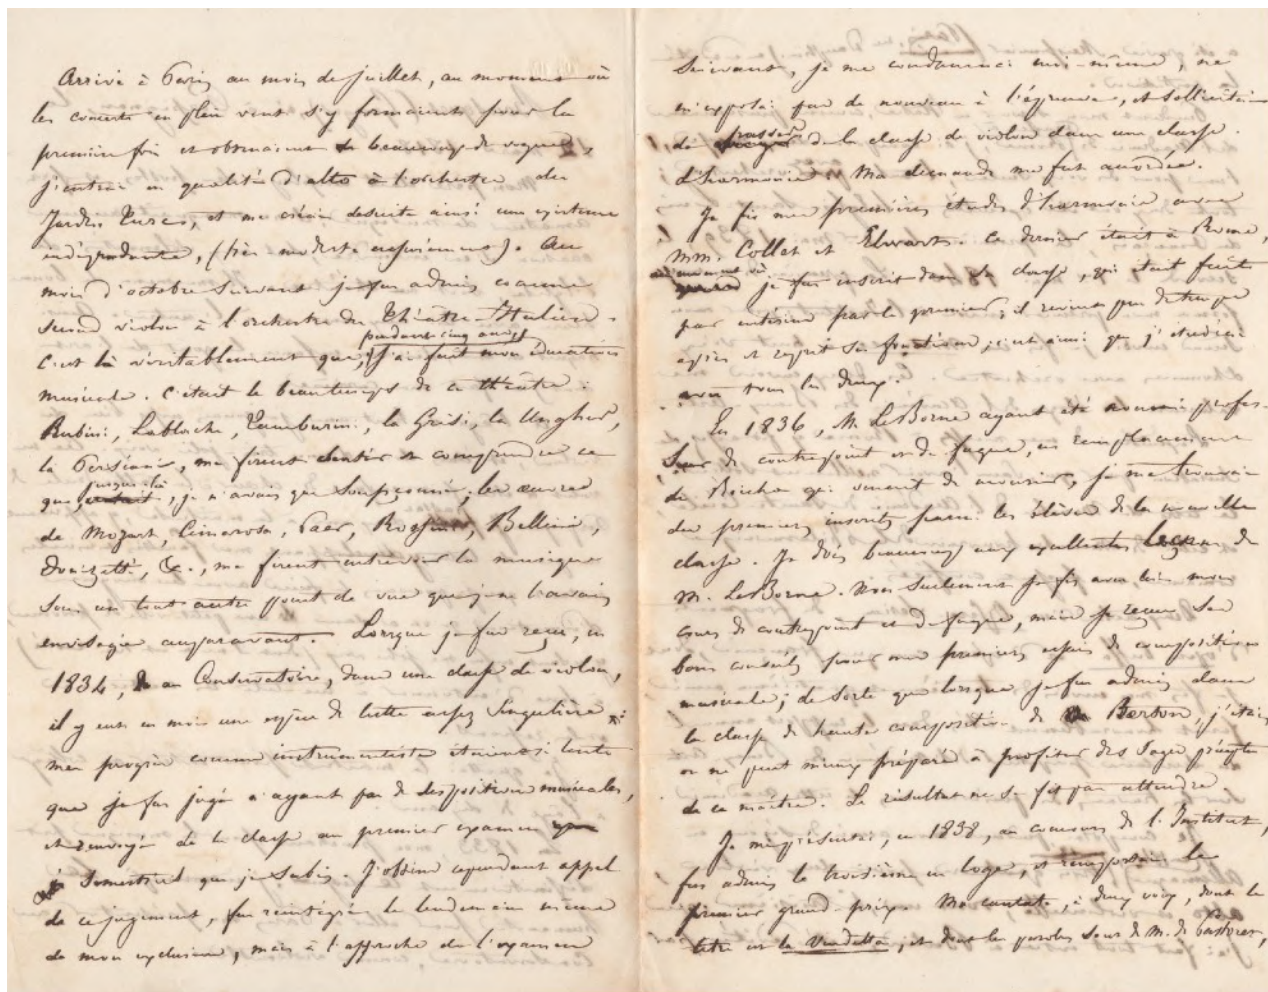 Arrivé à Paris au mois de juillet, au moment où
les concerts en plein vent s'y formaient pour la
première fois et obtenaient beaucoup de vogue,
j'entrai en qualité d'alto à l'orchestre du
Jardin Turc, et me créai de suite ainsi une existence
indépendante, (très modeste assurément). Au
mois d'octobre suivant je fus admis comme
second violon à l'orchestre du Théâtre-Italien.
pendant cinq ans
C'est là véritablement que, j'ai fait mon éducation
musicale. C'était le beau temps de ce théâtre :
Rubini, Lablache, Tamburini, la Grisi, la Ungher,
la Persiani, me firent sentir et comprendre ce
jusque là
que, je n'avais que soupçonné; les œuvres
de Mozart, Cimarosa, Paer, Rossini, Bellini,
Donizetti, &c., me firent entrevoir la musique
sous un tout autre point de vue que je ne l'avais
envisagée auparavant. Lorsque je fus reçu, en
1834, au Conservatoire, dans une classe de violon,
il y eut en moi une espèce de lutte assez singulière :
mes progrès comme instrumentiste étaient si lents
que je fus jugé n'ayant pas de dispositions musicales,
et renvoyé de la classe au premier examen
semestriel que je subis. J'osai cependant appel
de ce jugement, fus réintégré le lendemain même
de mon exclusion, mais à l'approche de l'examen
suivant, je me condamnai moi-même, ne
m'exposai pas de nouveau à l'épreuve, et sollicitai
passer
de de la classe de violon dans une classe
d'harmonie. Ma demande me fut accordée.
Je fis mes premières études d'harmonie avec
MM. Collet et Elwart. Ce dernier était à Rome,
au moment où
je fus inscrit dans sa classe, qui était faite
par intérim par le premier; il revint peu de temps
après et reprit ses fonctions; c'est ainsi que j'étudiai
avec tous les deux.
En 1836, M. LeBorne ayant été nommé profes-
seur de contrepoint et de fugue, en remplacement
de Reicha qui venait de mourir, je me trouvai
des premiers inscrits parmi les élèves de la nouvelle
classe. Je dois beaucoup aux excellentes leçons de
M. LeBorne. Non seulement je fis avec lui mon
cours de contrepoint et de fugue, mais je reçus ses
bons conseils pour mes premiers essais de composition
musicale; de sorte que lorsque je fus admis dans
la classe de haute composition de Berton, j'étais
on ne peut mieux préparé à profiter des sages préceptes
de ce maître. Le résultat ne se fit pas attendre.
Je me présentai, en 1838, au concours de l'Institut,
fus admis le troisième en loge, et remportai le
premier grand-prix. Ma cantate, à deux voix, dont le
titre est la Vendetta, et dont les paroles sont de M. de Pastoret,